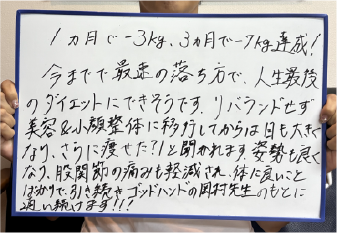 1ヵ月で-3kg、3ヵ月で-7kg達成!
今までで最速の落ち方で、人生最後
のダイエットにできそうです。リバウンドせず
美容&小顔整体に移行してからは目も大きく
なり、さらに痩せた?!と聞かれます。姿勢も良く
なり、股関節の痛みも軽減され、体に良いこと
ばかりで、引き続きゴッドハンドの岡村先生のもとに
通い続けます!!!